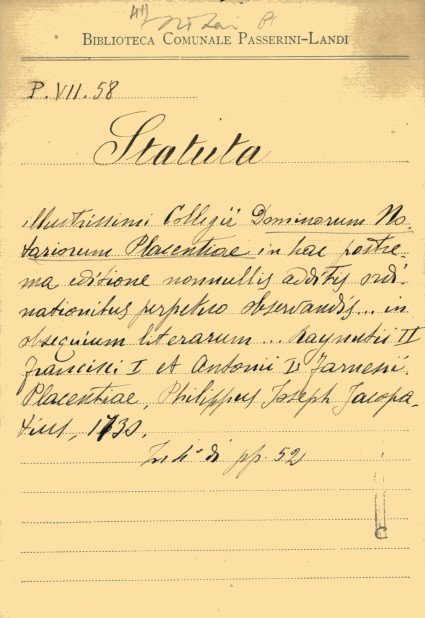 41) Notai P
BIBLIOTECA COMUNALE PASSERINI-LANDI
P. VII. 58
Statuta
illustrissimi Collegii Dominorum No-
tariorum Placentiae in hac postre-
ma editione nonnullis additis ordi-
nationibus perpetuo observandis... in
obsequium literarum... Raynutii II
Francisci I et Antonii I: Farnesii.
Placentiae, Philippus Joseph Jacopa-
tius, 1730.
In 4° di pp. 52